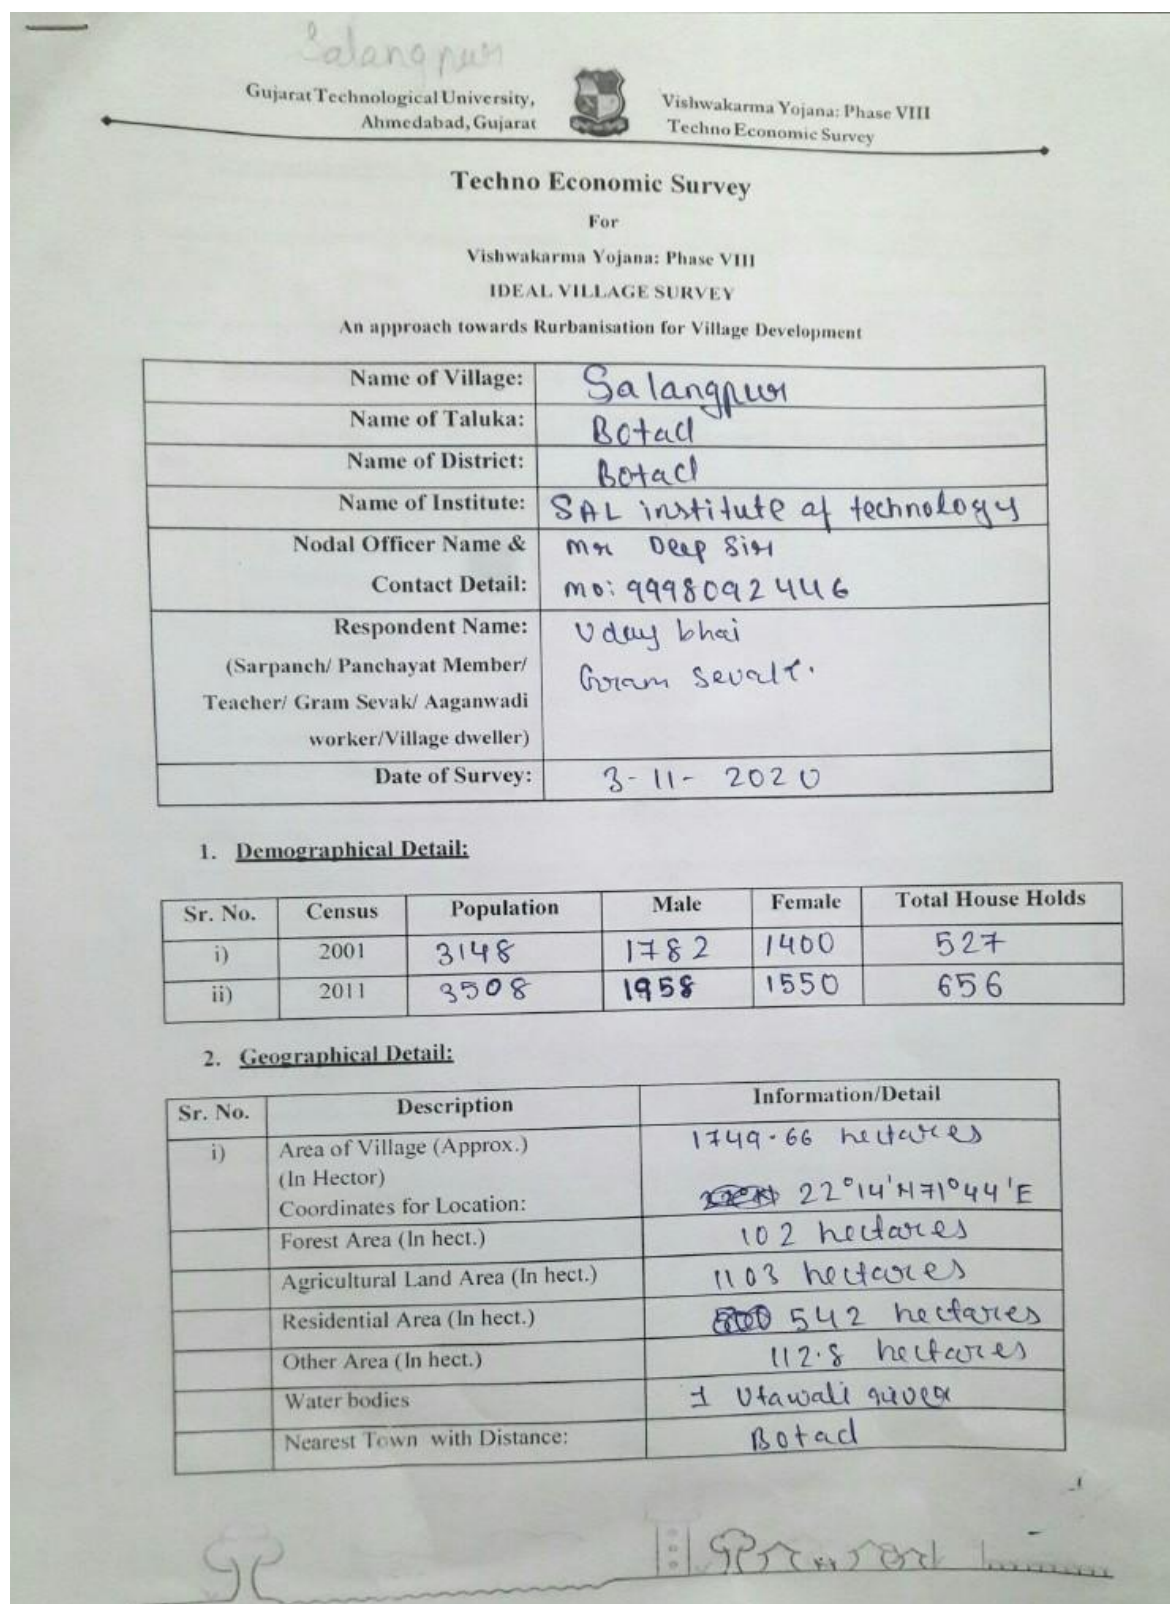 Salangpur
Gujarat Technological University,
Ahmedabad, Gujarat
Vishwakarma Yojana: Phase VIII
Techno Economic Survey
Techno Economic Survey
For
Vishwakarma Yojana: Phase VIII
IDEAL VILLAGE SURVEY
An approach towards Rurbanisation for Village Development
Name of Village: Salangpur
Name of Taluka: Botad
Name of District: Botad
Name of Institute: SAL institute of technology
Nodal Officer Name & Mr Deep Sir
Contact Detail: mo: 9998092446
Respondent Name: Uday bhai
(Sarpanch/ Panchayat Member/ Gram Sevak.
Teacher/ Gram Sevak/ Aaganwadi
worker/Village dweller)
Date of Survey: 3-11-2020
1. Demographical Detail:
Sr. No. Census Population Male Female Total House Holds
i) 2001 3148 1782 1400 527
ii) 2011 3508 1958 1550 656
2. Geographical Detail:
Sr. No. Description Information/Detail
i) Area of Village (Approx.) 1749.66 hectares
(In Hector)
Coordinates for Location: 22°14'N71°44'E
Forest Area (In hect.) 102 hectares
Agricultural Land Area (In hect.) 1103 hectares
Residential Area (In hect.) 542 hectares
Other Area (In hect.) 112.8 hectares
Water bodies 1 Utawali river
Nearest Town with Distance: Botad